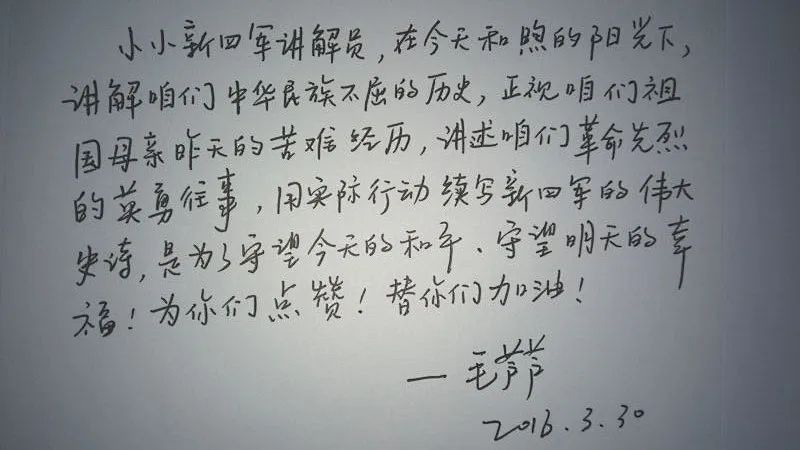 小小新四军讲解员,在今天和煦的阳光下,
讲解咱们中华民族不屈的历史,正视咱们祖
国母亲昨天的苦难经历,讲述咱们革命先烈
的英勇往事,用实际行动续写新四军的伟大
史诗,是为了守望今天的和平、守望明天的幸
福!为你们点赞!替你们加油!
—毛芦芦
2016.3.30